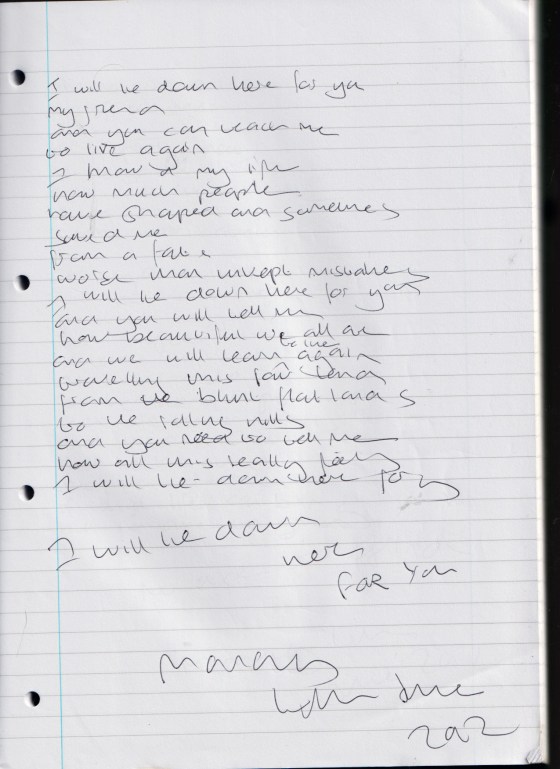 I will lie down here for you
my friend
and you can teach me
to live again
I know my life
how much people
have shaped and sometimes
saved me
from a fate
worse than unkept mistakes
I will lie down here for you
and you will tell me
how beautiful we all are
and we will learn to live again
travelling this land
from the blunt flat lands
to the rolling hills
and you need to tell me
how all this really feels
I will lie down here for you
I will lie down
here
For You
Monday
June